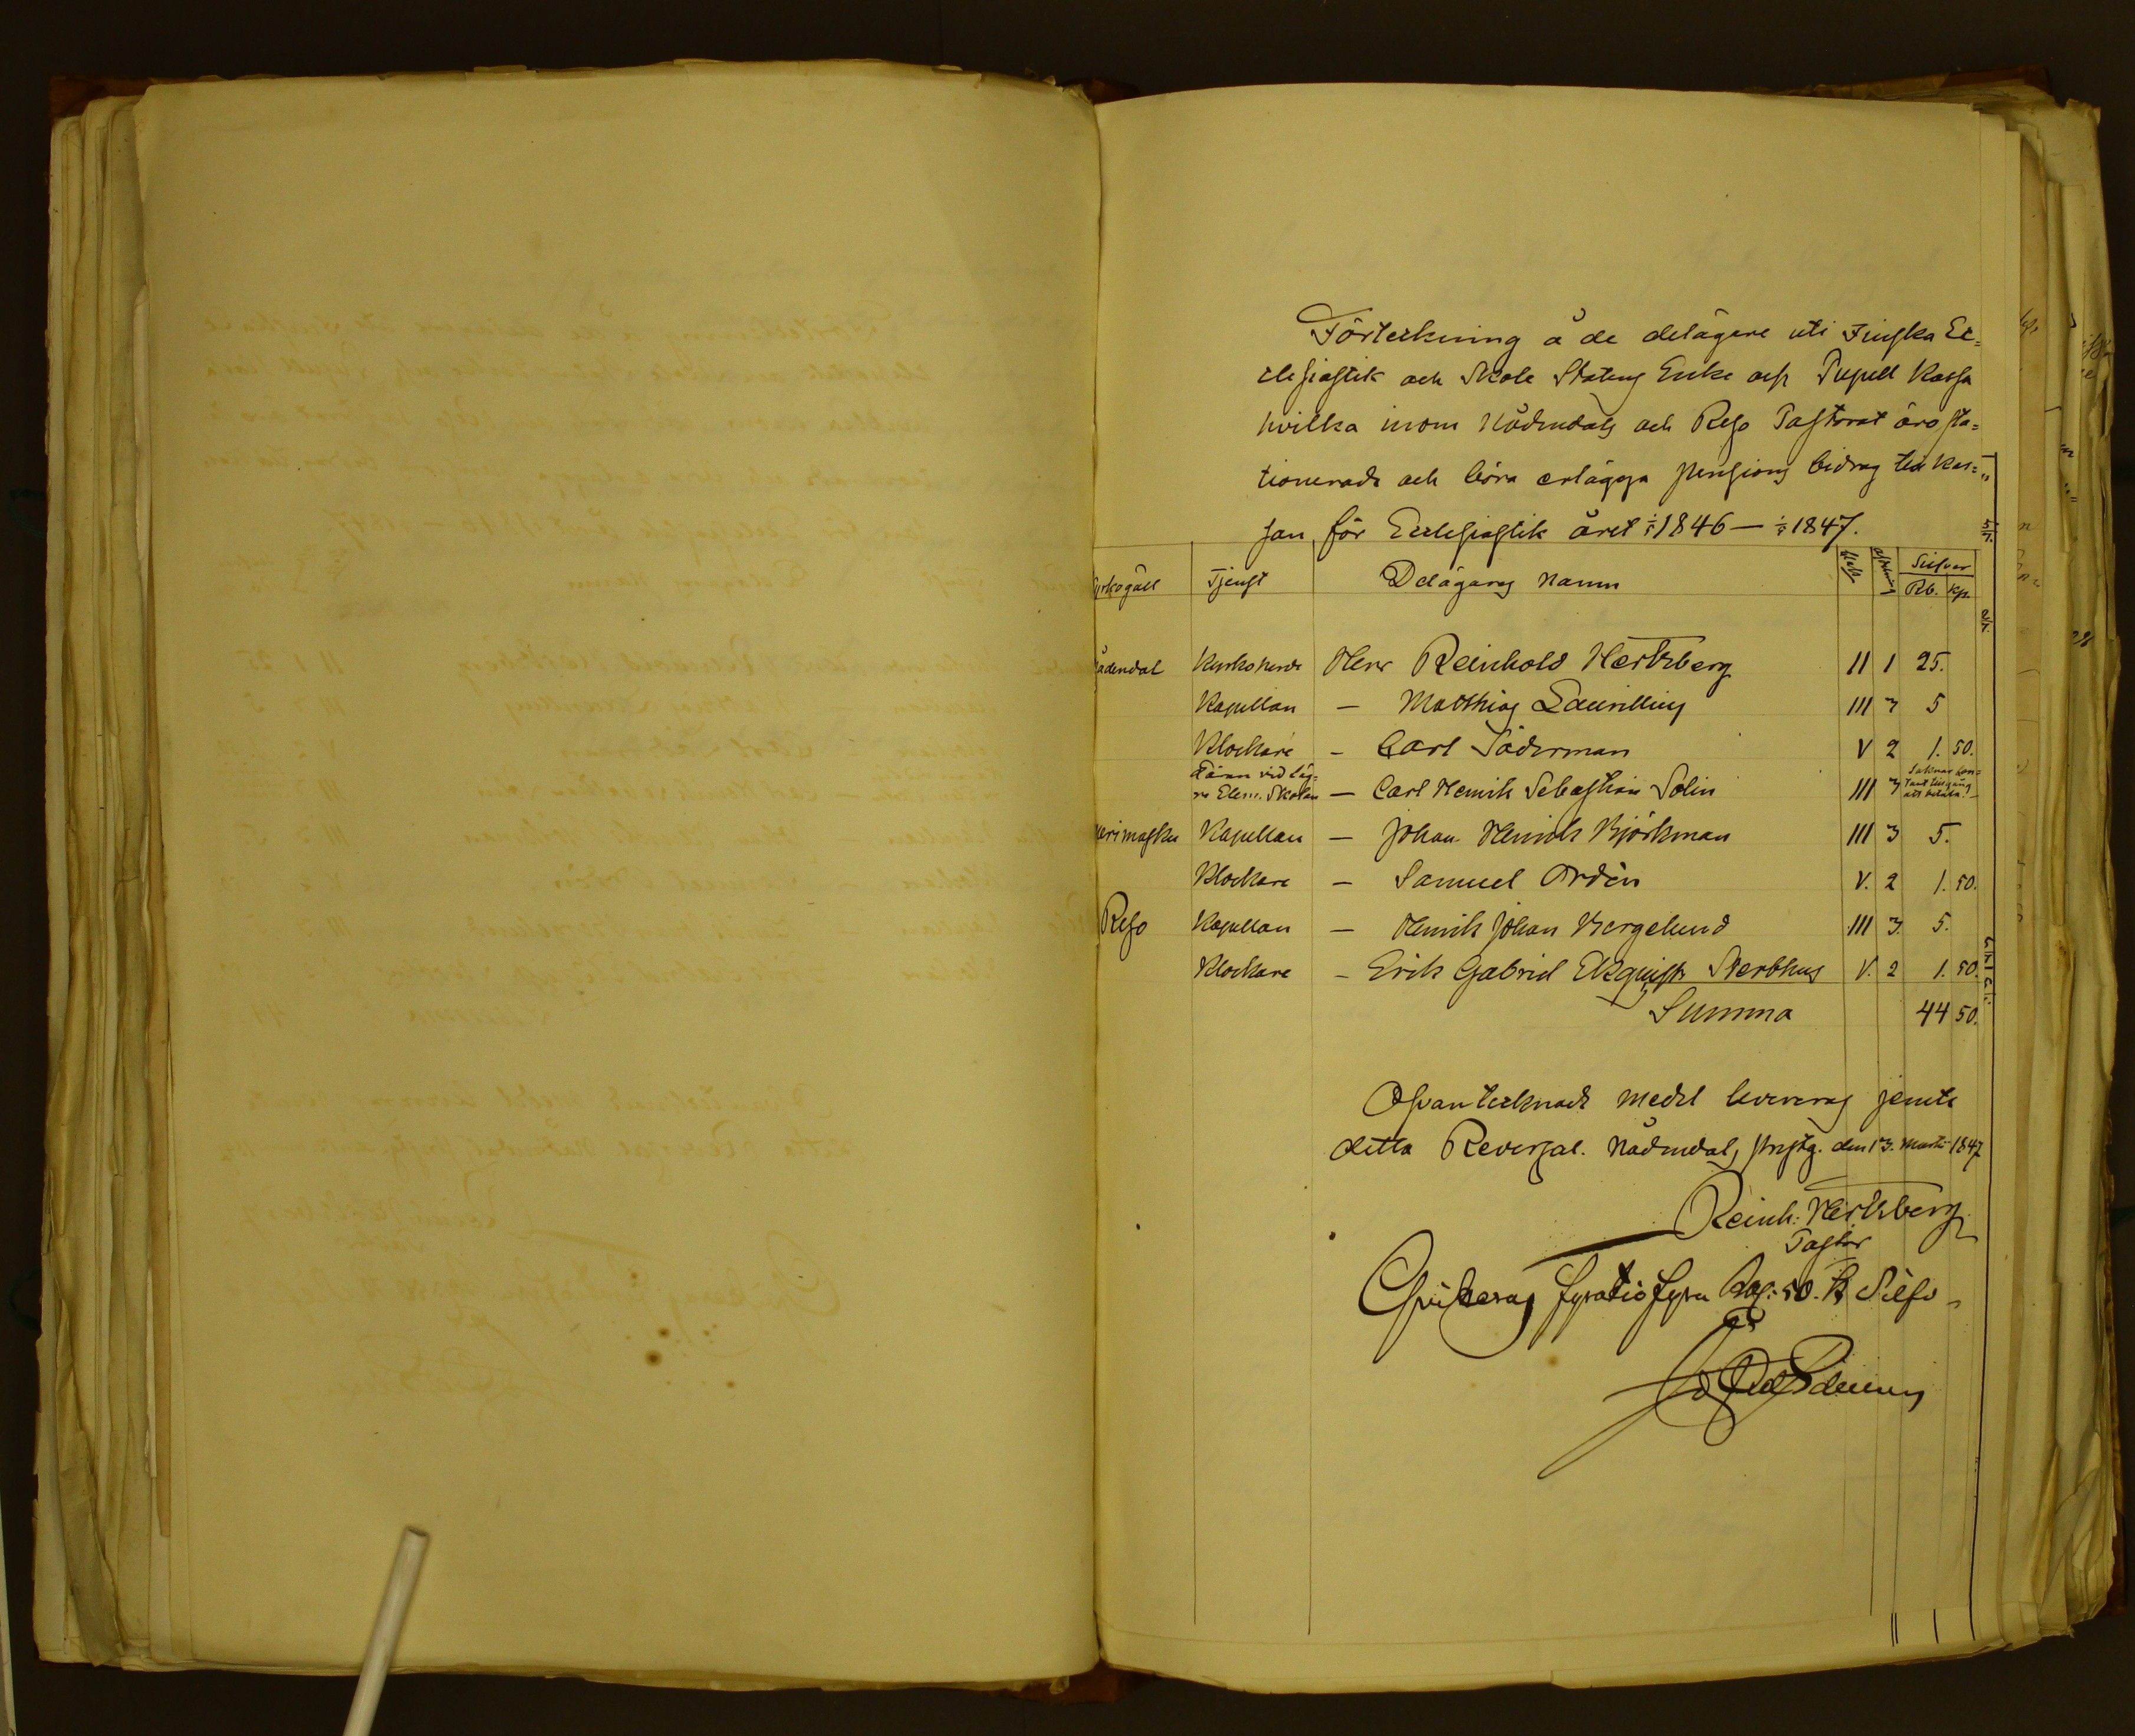 Förteckning å de delägare uti Finska Ec=
clesiastik och Skole Statens Enke och Pupill Kassa
hvilka inom Nådendals och Reso Pastorat äro sta=
tionerade och böra erlägga pensions bidrag till Kas=
san för Ecclesiastik året 1/5 1846 — 1/5 1847.
yrkogäll Tjenst Delägares Namn Klass Silfver
Rb. Kp.
ådendal Kyrkoherde Herr Reinhold Hertzberg II 1 25.
Kapellan — Matthias Laurellius III 3 5
Klockare — Carl Söderman V 2 1. 50.
vid läg=
re Elem. Skolan — Carl Henrik Sebastian Solin III 3 Saknar kon=
tant tillgång
att betala.
erimasku Kapellan — Johan Henrik Björkman III 3 5.
Klockare — Samuel Ordén V. 2 1. 50.
Reso Kapellan — Henrik Johan Bergelund III 3. 5.
Klockare — Erik Gabriel Ekquists Sterbhus V. 2 1. 50.
Summa 44 50.
Ofvantecknade medel levereras jemte
detta Reversal. Nådendal, prestg. den 13. Martii 1847
Reinh: Hertzberg
Pastor
Qvitteras fyratiofyra 50. Silfv